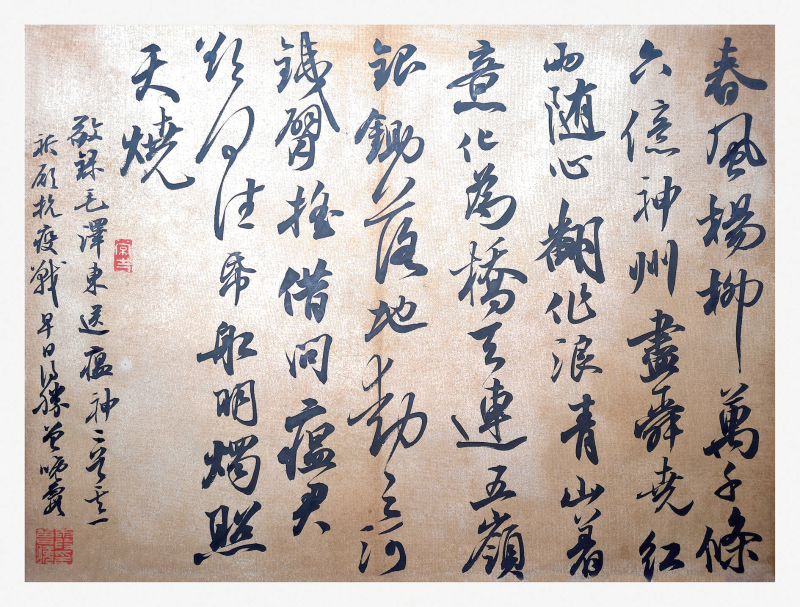 春風楊柳萬千條
六億神州盡舜堯紅
雨隨心翻作浪青山着
意化為橋天連五嶺
銀鋤落地動三河
鐵臂搖借問瘟君
欲何往紙船明燭照
天燒
敬錄毛澤東送瘟神二首其一
祈願抗疫戰早日得勝曾